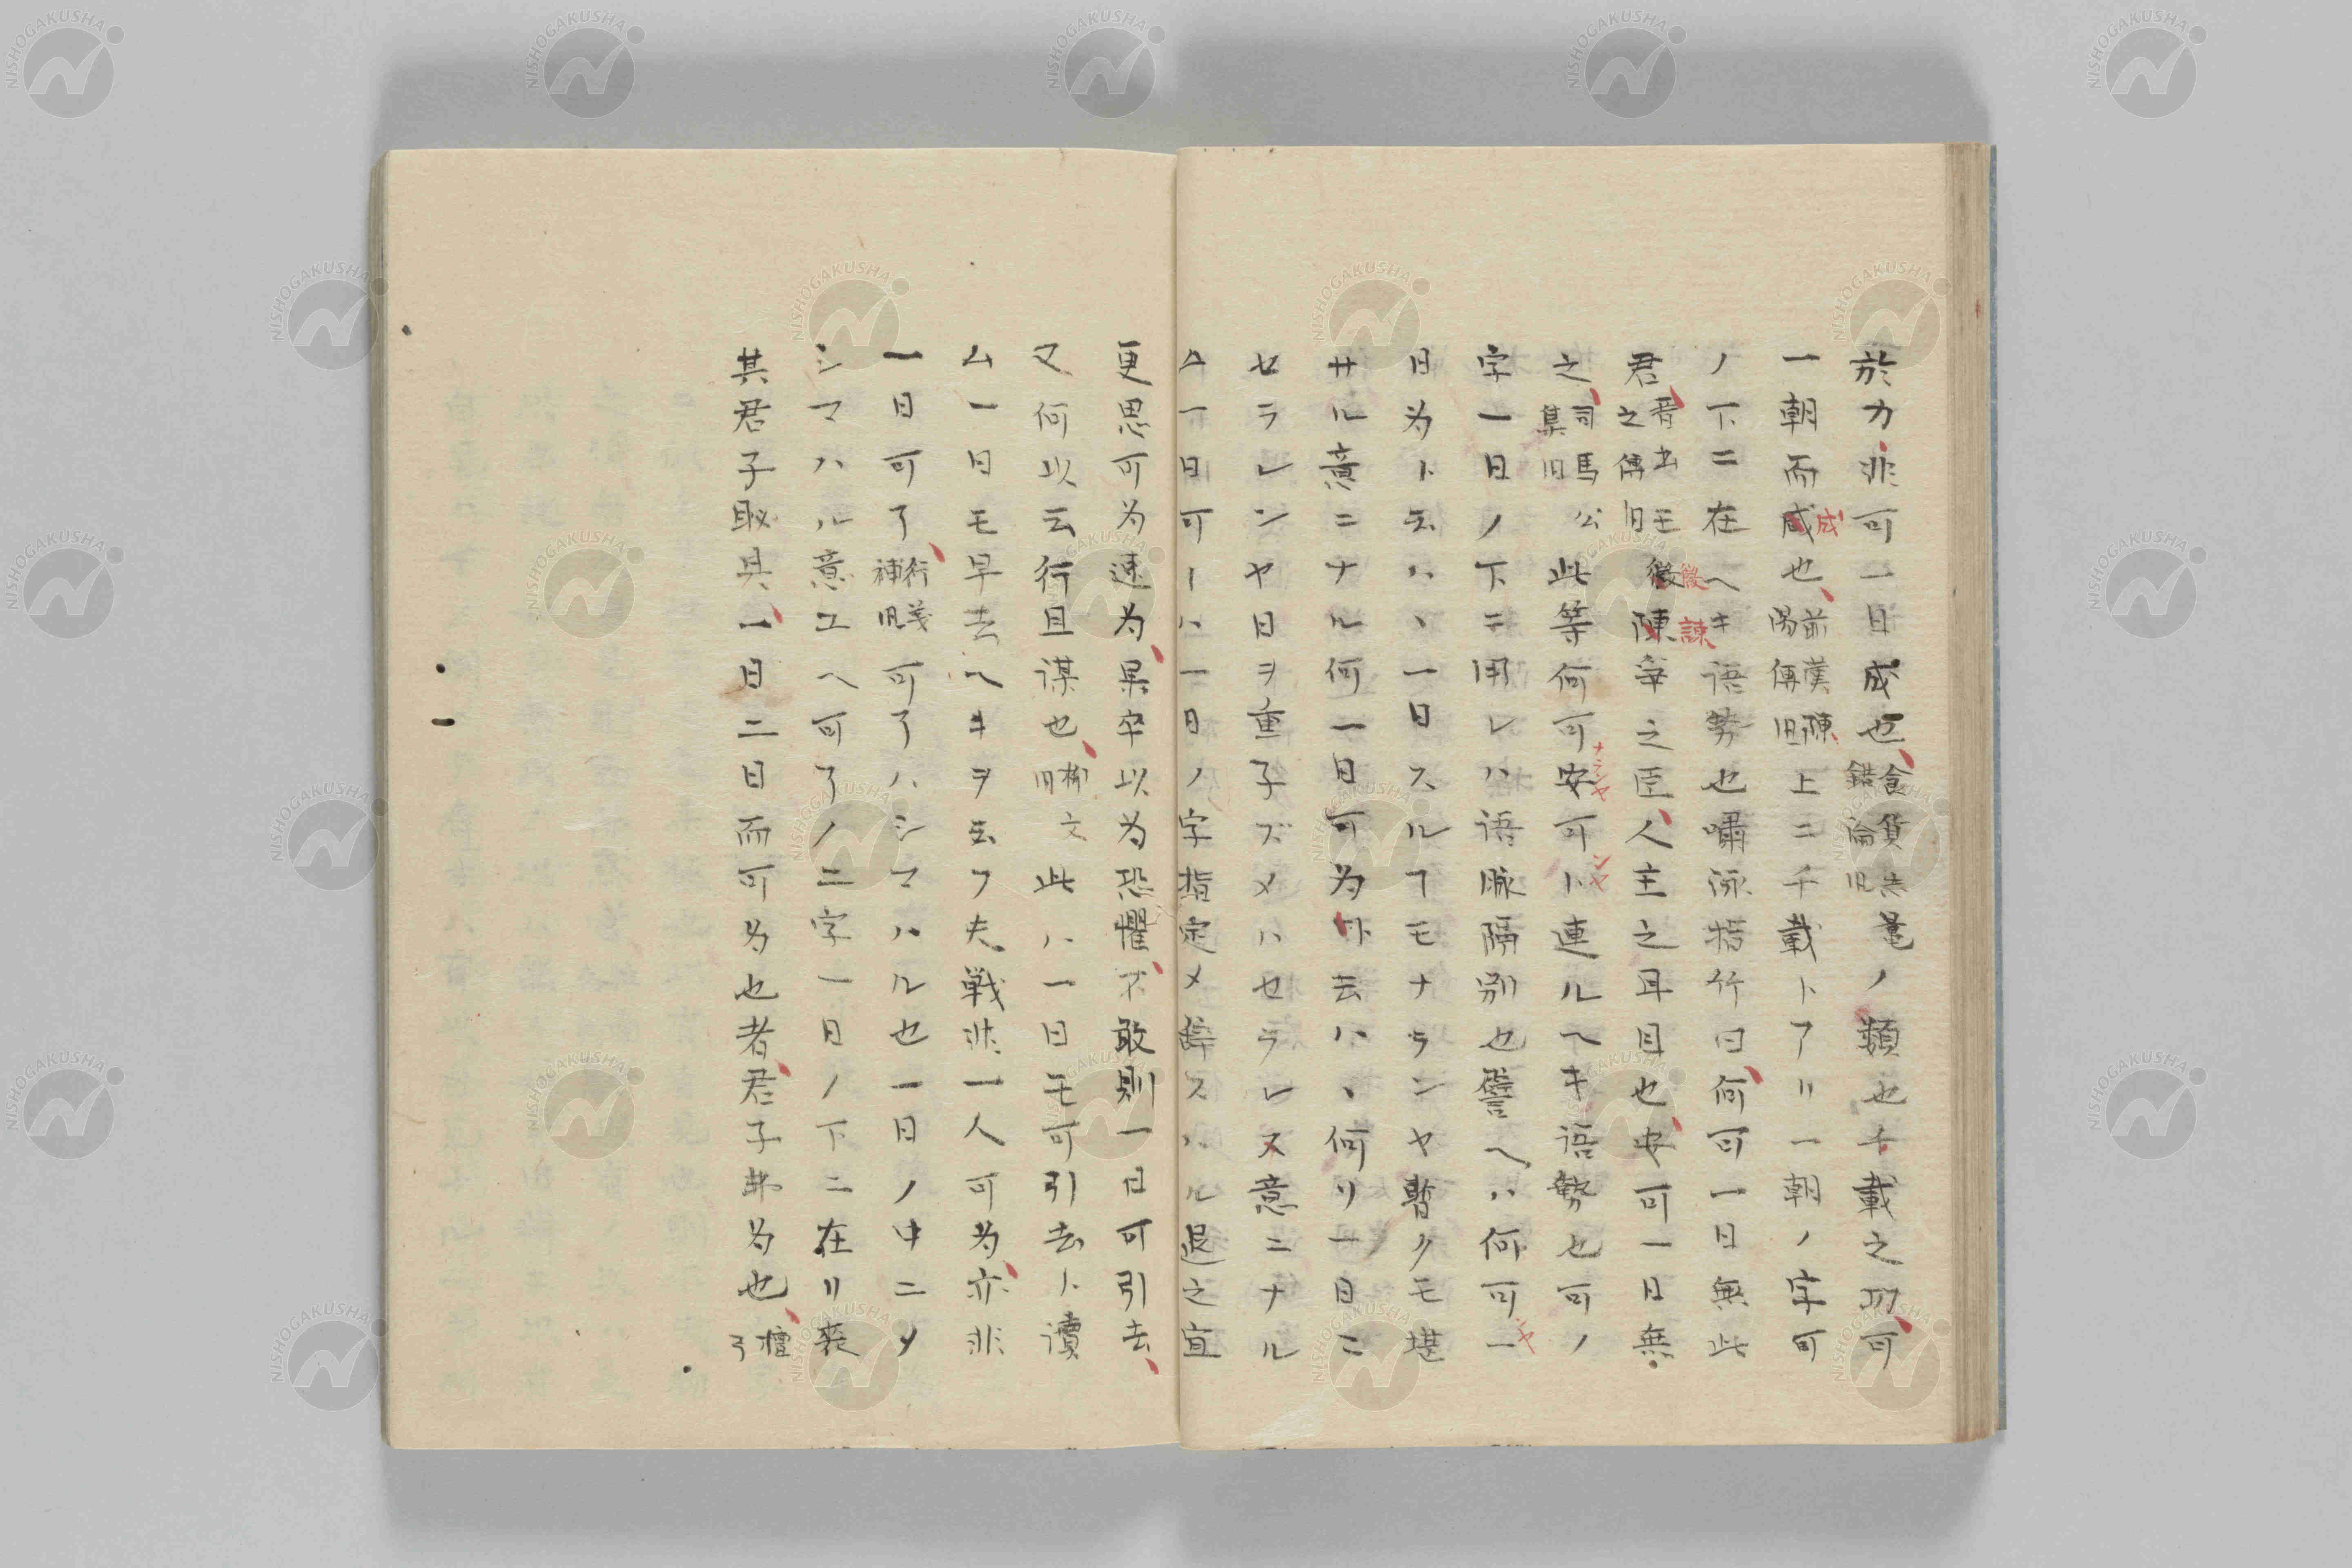 於力非可一日成也食貨志鼂錯論旧ノ類也千載之功可
一朝而咸成也前漢陳湯傳旧上ニ千載トアリ一朝ノ字可
ノ下ニ在ヘキ語勢也嘯詠指竹曰何可一日無此
君晋書王之傳旧微陳諫宰之臣人主之耳目也安可一日無
之司馬公集旧此等何可安可ト連ルヘキ語勢也可ノ
字一日ノ下ニ用レハ語脉隔別也譬ヘハ何可一
日为ト云ハヽ一日スルヿモナランヤ暫クモ堪
サル意ニナル何一日可为ト云ハヽ何リ一日ニ
セラレンヤ日ヲ重子ズメハセラレヌ意ニナル
ム一日可ーハ一日ノ字指定メ辞スハル退之宜
更思可为速为果卒以为恐懼不敢則一日可引去
又何以云行且謀也柳文旧此ハ一日モ可引去ト讀
ム一日モ早去ヘキヲ云フ夫戦非一人可为亦非
一日可了行義補旧可了ハシマハル也一日ノ中ニメ
シマハル意エヘ可了ノ二字一日ノ下ニ在リ喪
其君子恥具一日二日而可为也者君子弗为也檀弓